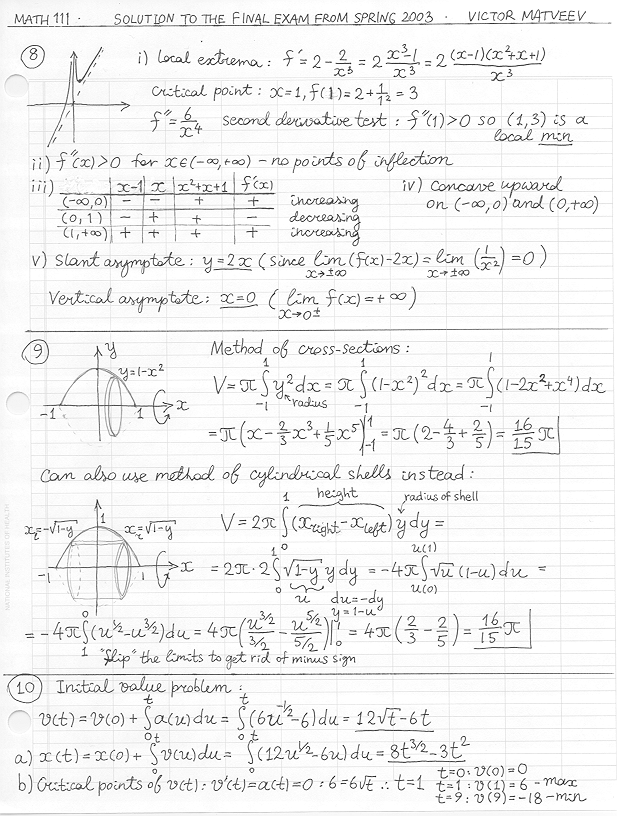 MATH 111 · SOLUTION TO THE FINAL EXAM FROM SPRING 2003 · VICTOR MATVEEV
8
i) local extrema : f' = 2 - 2/x³ = 2 (x³-1)/x³ = 2 (x-1)(x²+x+1)/x³
critical point : x=1, f(1) = 2 + 1/1² = 3
f'' = 6/x⁴ second derivative test : f''(1) > 0 so (1,3) is a
local min
ii) f''(x) > 0 for x∈(-∞,+∞) - no points of inflection
iii) | x-1 | x | x²+x+1 | f'(x)
(-∞,0) | - | - | + | + increasing
(0,1) | - | + | + | - decreasing
(1,+∞) | + | + | + | + increasing
iv) Concave upward
on (-∞,0) and (0,+∞)
v) Slant asymptote : y = 2x (since lim x→±∞ (f(x)-2x) = lim x→±∞ (1/x²) = 0)
Vertical asymptote : x=0 ( lim x→0± f(x) = +∞ )
9
y
y=1-x²
-1 1 x
Method of cross-sections :
V = π ∫₋₁¹ y² dx = π ∫₋₁¹ (1-x²)² dx = π ∫₋₁¹ (1-2x²+x⁴) dx
radius
= π (x - 2/3 x³ + 1/5 x⁵)|₋₁¹ = π (2 - 4/3 + 2/5) = 16/15 π
Can also use method of cylindrical shells instead :
height radius of shell
x₂=-√1-y x₂=√1-y
-1 1 x
V = 2π ∫₀¹ (x right - x left) y dy =
= 2π · 2 ∫₀¹ √1-y y dy = -4π ∫ u(0) u(1) √u (1-u) du =
u du=-dy
y=1-u
= -4π ∫₁⁰ (u^1/2 - u^3/2) du = 4π (u^3/2 / 3/2 - u^5/2 / 5/2)|₀¹ = 4π (2/3 - 2/5) = 16/15 π
"flip" the limits to get rid of minus sign
10 Initial value problem :
v(t) = v(0) + ∫₀ᵗ a(u) du = ∫₀ᵗ (6u^-1/2 - 6) du = 12√t - 6t
a) x(t) = x(0) + ∫₀ᵗ v(u) du = ∫₀ᵗ (12u^1/2 - 6u) du = 8t^3/2 - 3t²
b) Critical points of v(t) : v'(t) = a(t) = 0 : 6 = 6√t ∴ t=1
t=0 : v(0) = 0
t=1 : v(1) = 6 - max
t=9 : v(9) = -18 - min
NATIONAL INSTITUTES OF HEALTH